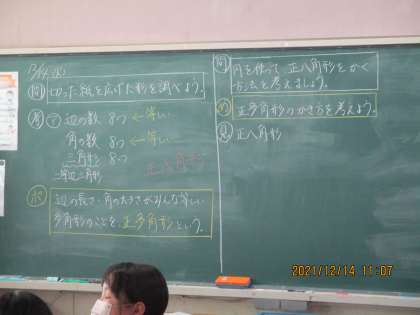 12/14(火)
問 切った紙を広げた形を調べよう。
考 ア 辺の数 8つ ← 等しい
角の数 8つ ← 等しい
三角形 8つ
二等辺三角形
正八角形
辺の長さ、角の大きさがみんな等しい
多角形のことを、正多角形という。
問 円を使って、正八角形をかく
方法を考えましょう。
め 正多角形のかき方を考えよう。
見 正八角形
2021/12/14 11:07